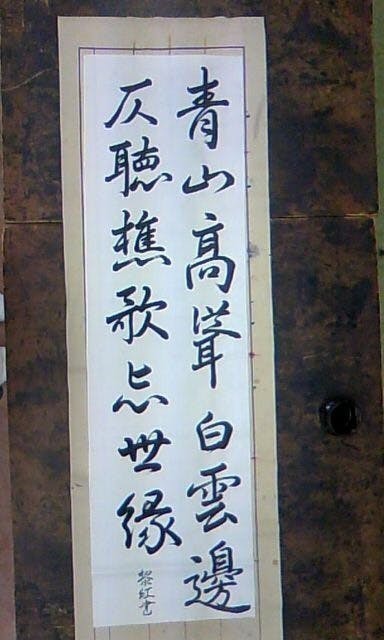 青山高聳白雲邊
仄聽樵歌忘世縁
黎紅書